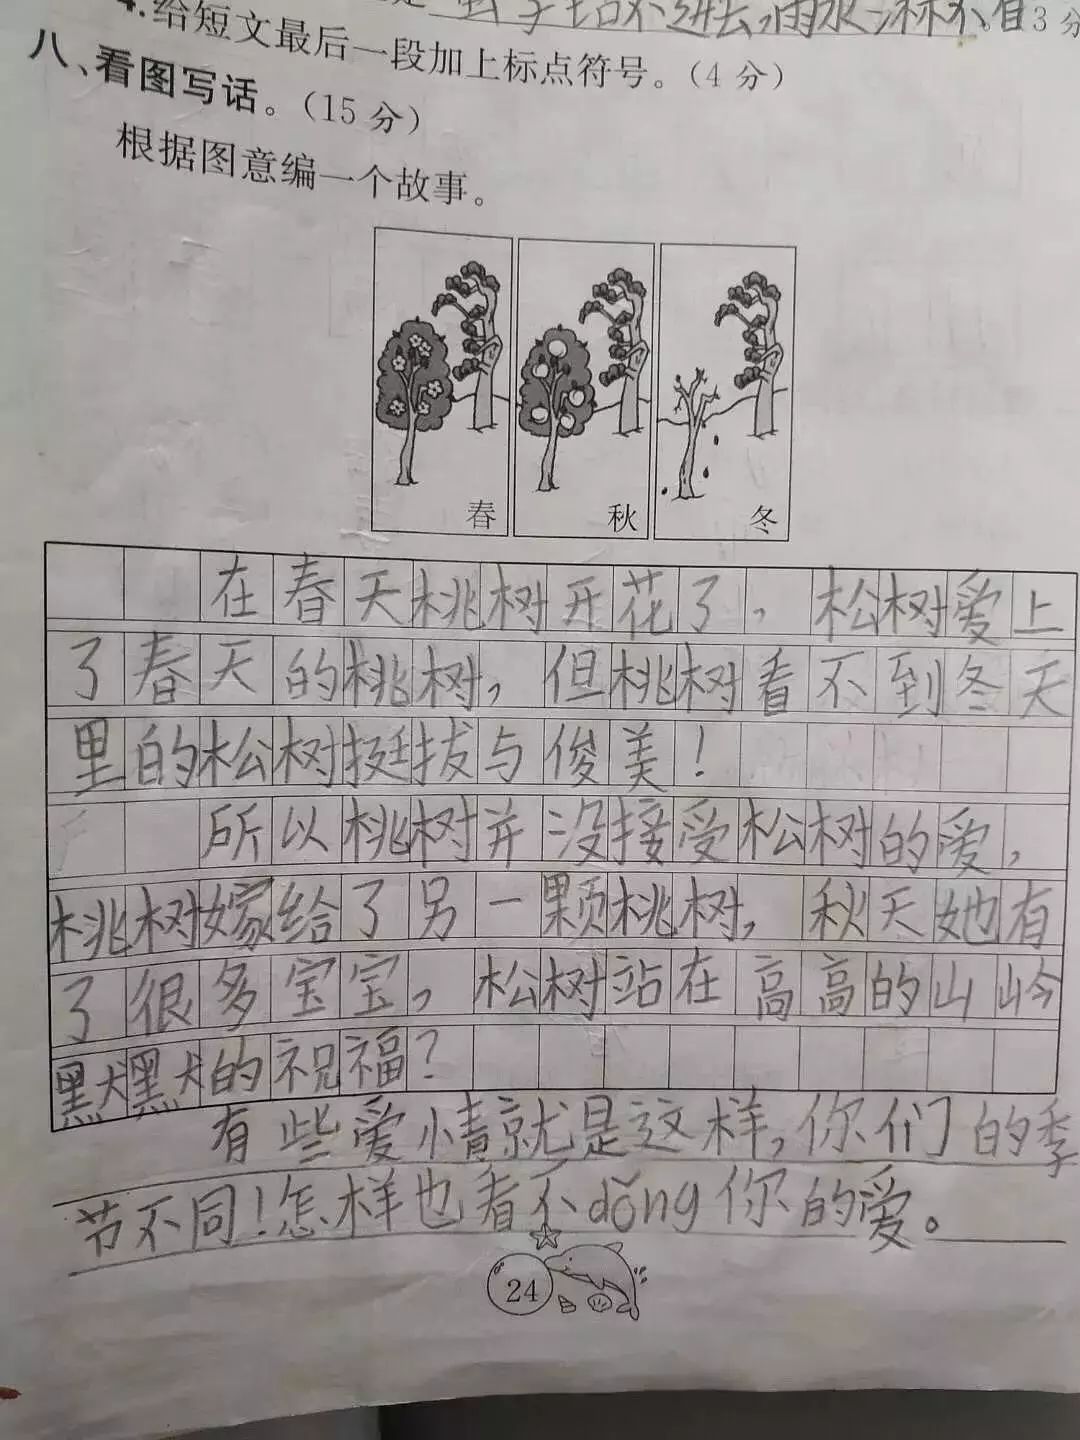 不进去,雨水 3分
4.给短文最后一段加上标点符号。(4分)
八、看图写话。(15分)
根据图意编一个故事。
春 秋 冬
在春天桃树开花了,松树爱上
了春天的桃树,但桃树看不到冬天
里的松树挺拔与俊美!
所以桃树并没接受松树的爱,
桃树嫁给了另一颗桃树,秋天她有
了很多宝宝,松树站在高高的山岭
默默的祝福?
有些爱情就是这样,你们的季
节不同!怎样也看不dǒng你的爱。
24